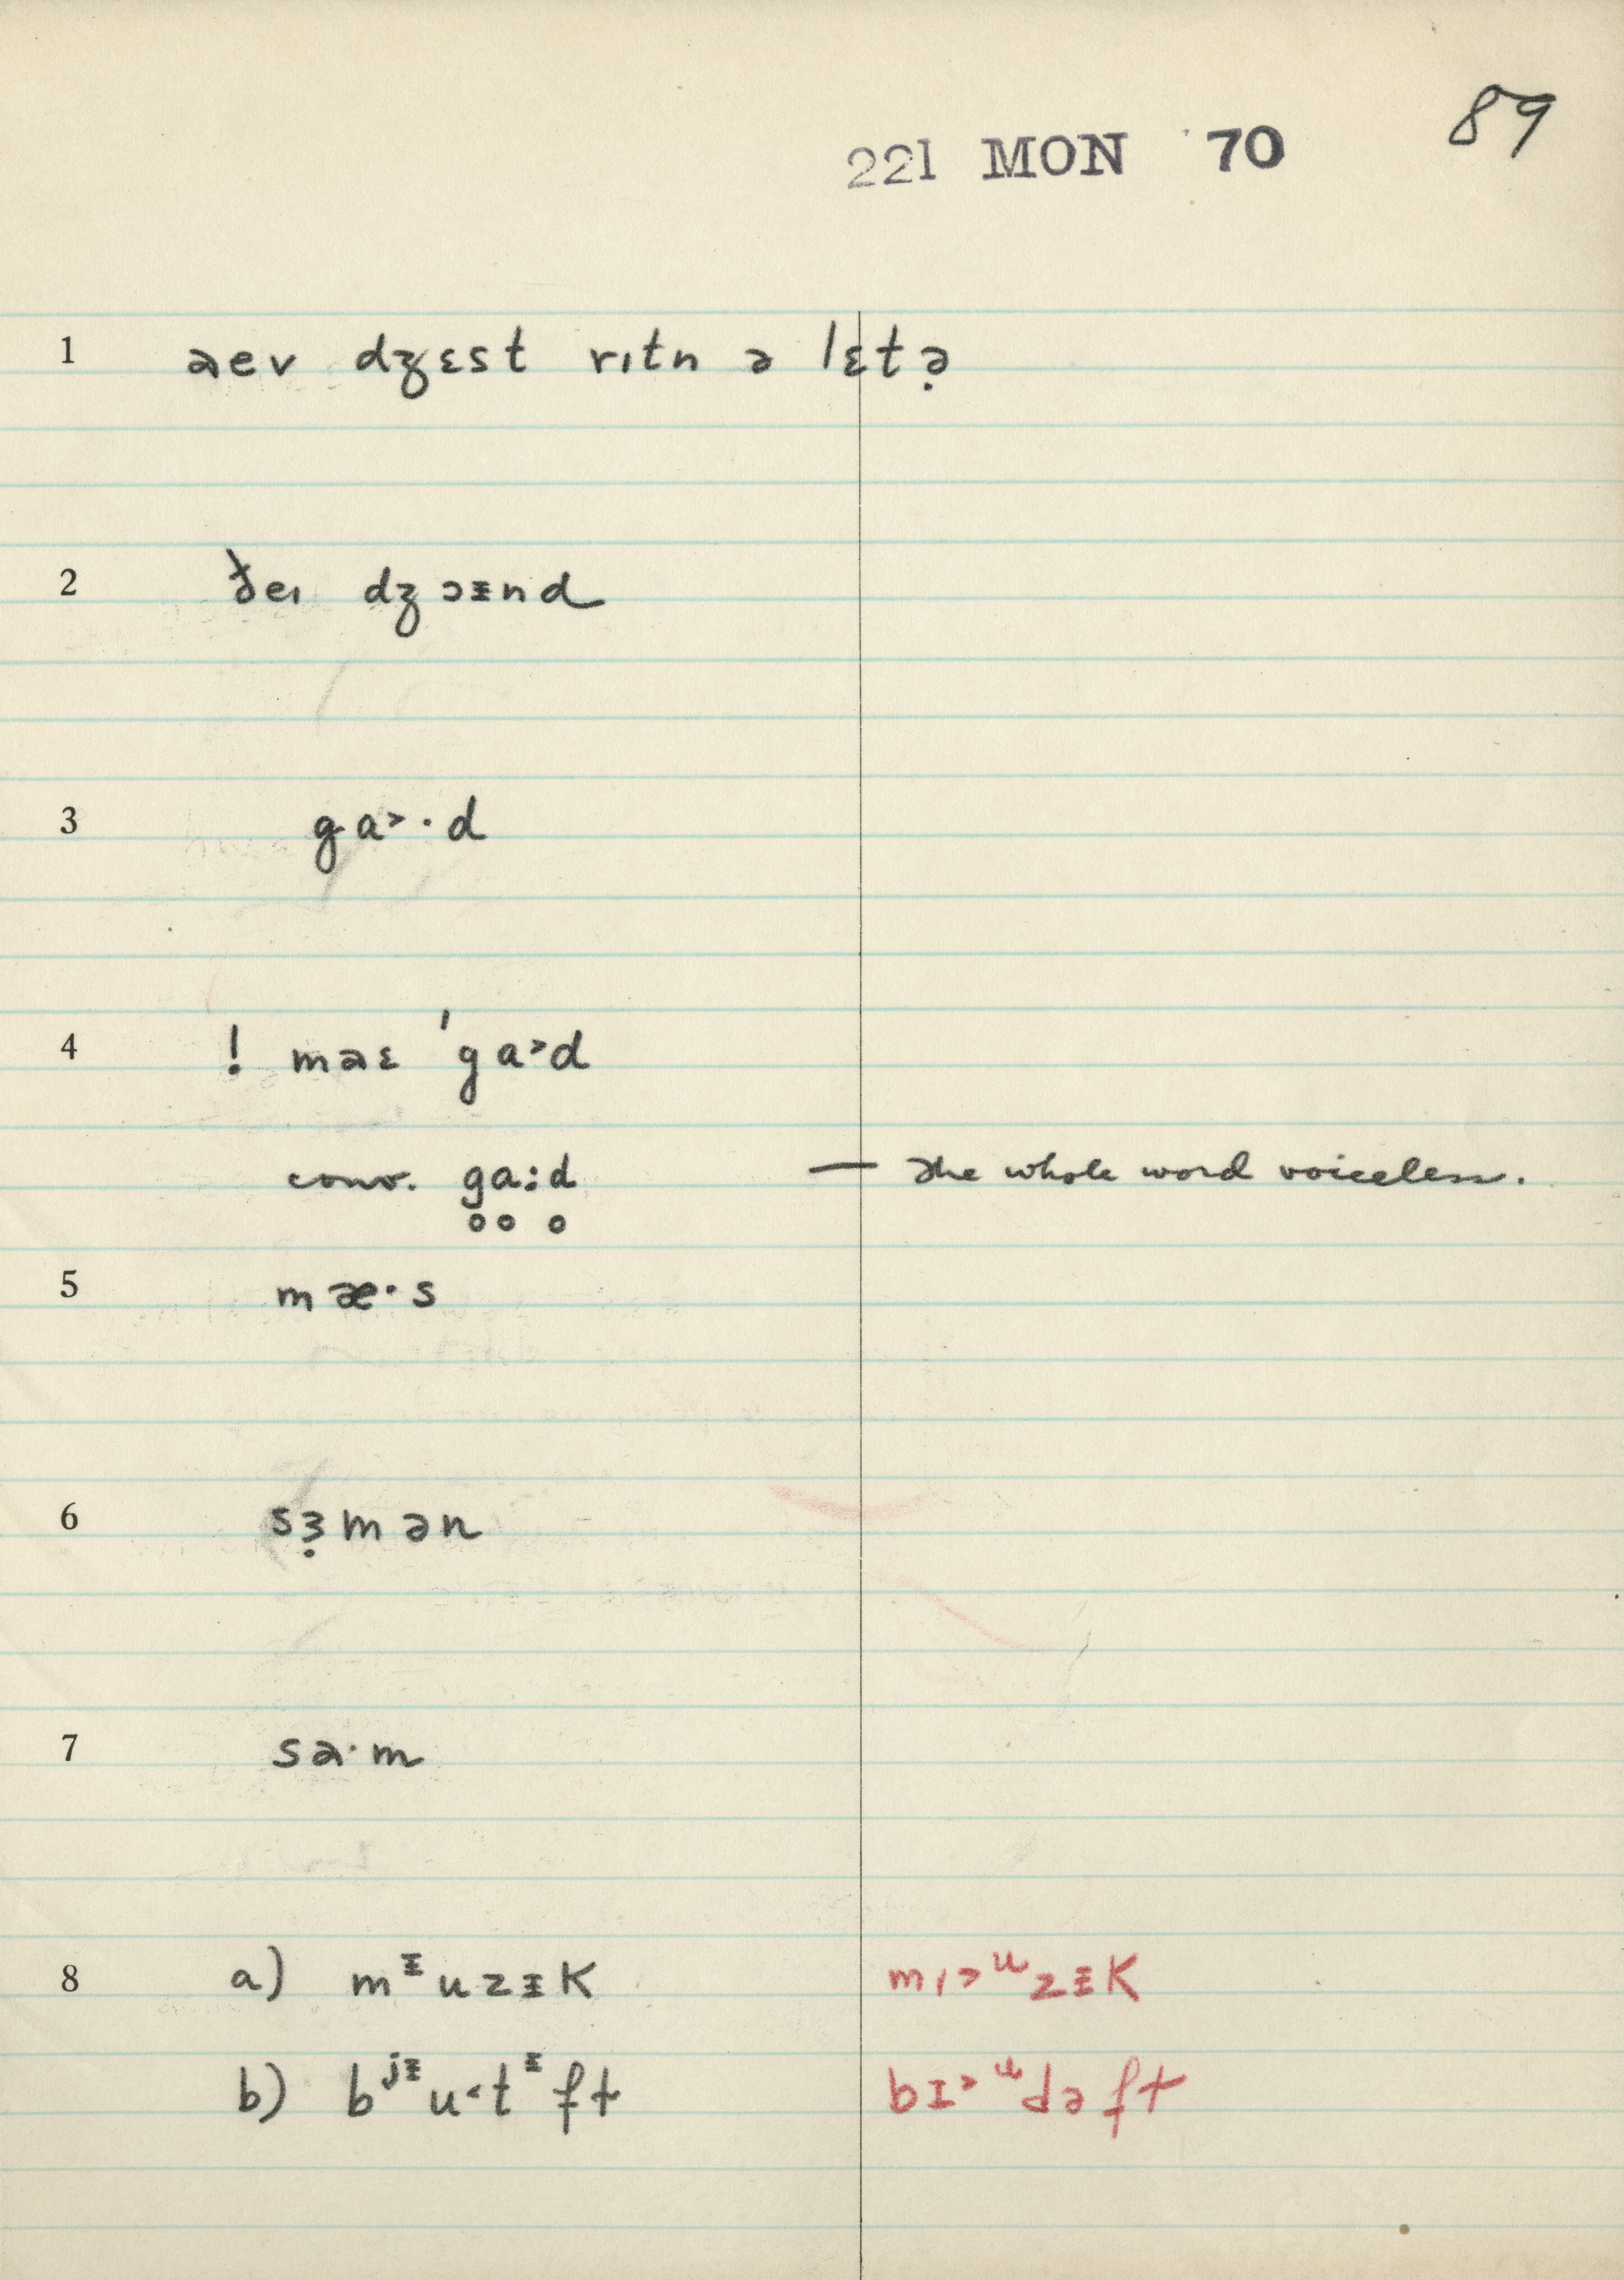 89
221 MON '70
1 aev dʒɛst rɪtn ə lɛtə̣
2 ðeɪ dʒɔᵻnd
3 ga˃·d
4 ! maɛ 'ga˃d
conv. g̥ḁ:d̥ — The whole word voiceless.
5 mæ·s
6 sɜ̣mən
7 sa·m
8 a) mᵻuzᵻk mɪ˃ᵘzᵻk
b) bʲᵻu˂tᵻft bɪ˃ᵘdəft